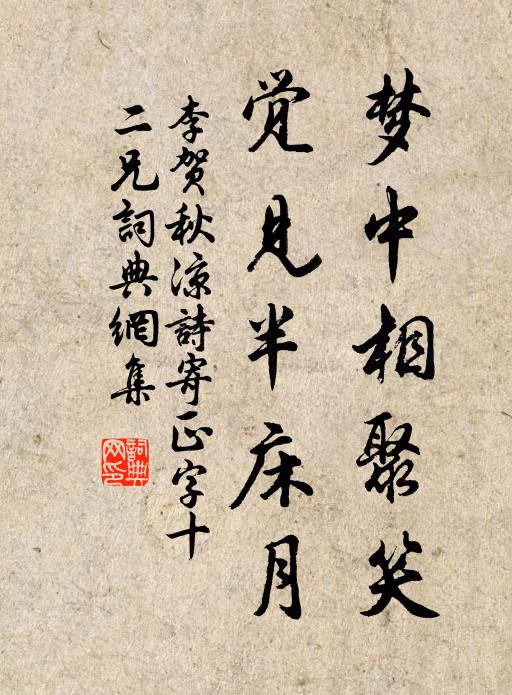 梦中相聚笑
觉见半床月
李贺秋凉詩寄正字十
二兄詞典網集
詞典
网印